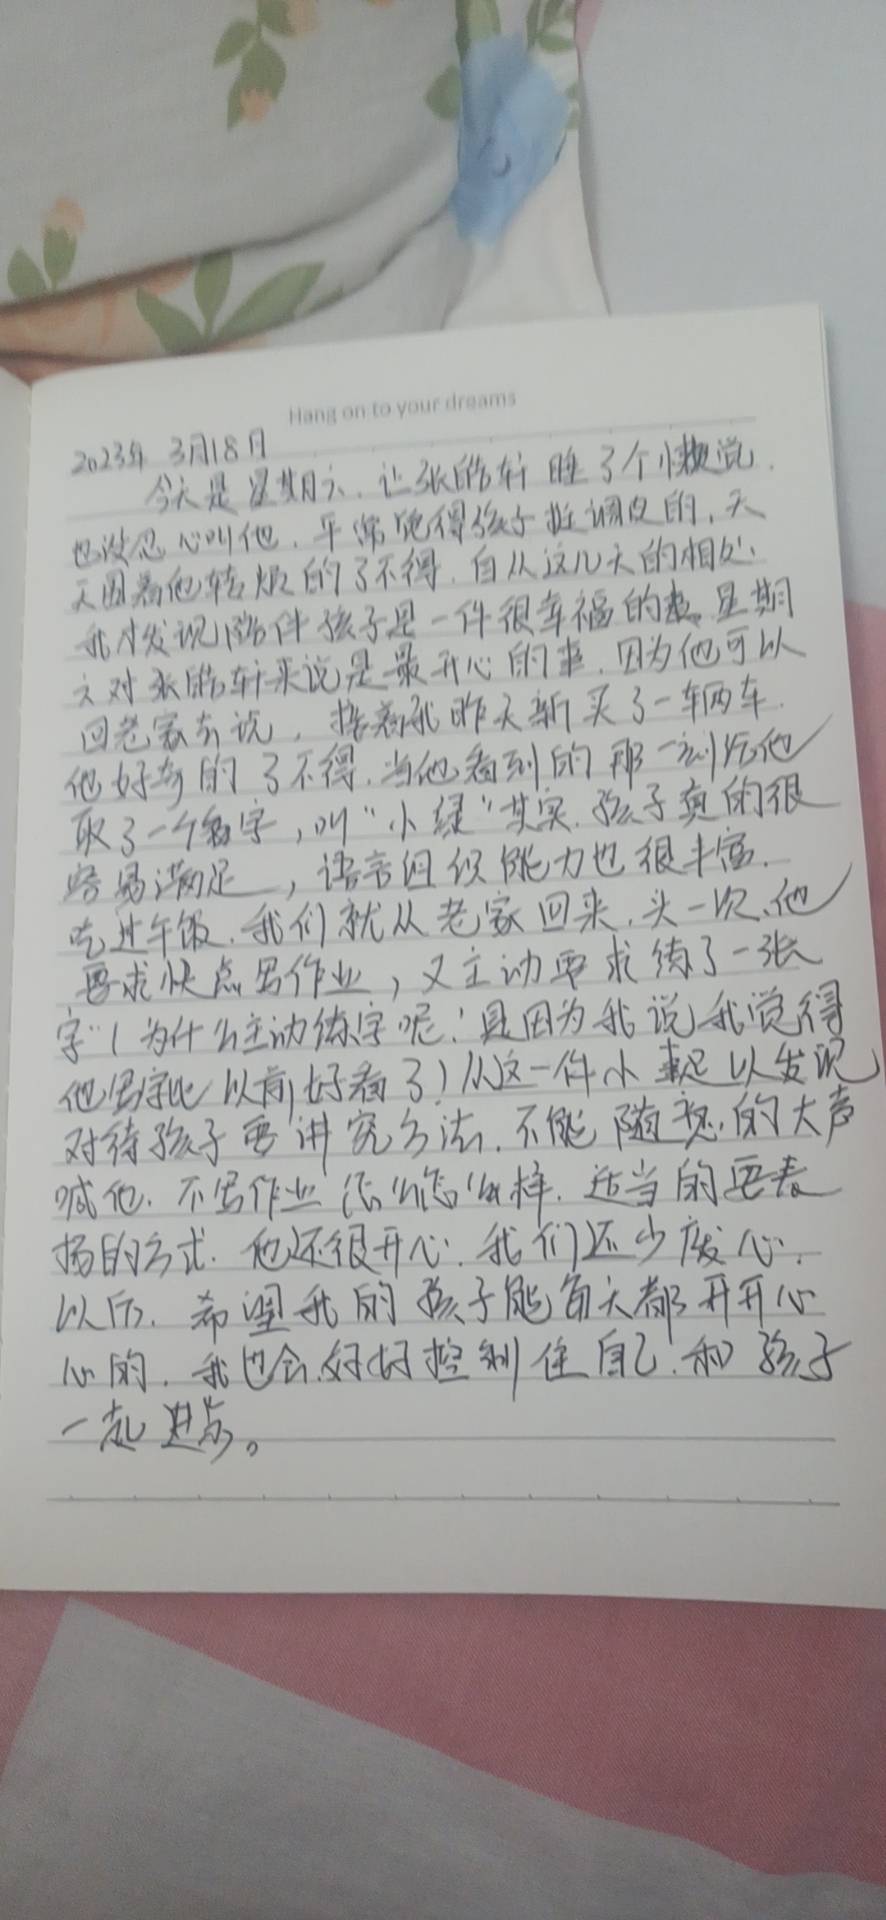 Hang on to your dreams
2023年 3月18日
今天是星期六,让张皓轩睡了个懒觉.
也没忍心叫他.平常觉得孩子挺调皮的,天
天围着他转烦的了不得.自从这几天的相处.
我才发现陪伴孩子是一件很幸福的事.星期
六对张皓轩来说是最开心的事.因为他可以
回老家去玩,接着我昨天新买了一辆车.
他好奇的了不得.当他看到的那一刻给他
取了一个名字,叫“小绿”其实.孩子真的很
容易满足,语言组织能力也很丰富.
吃过午饭.我们就从老家回来.头一次、他
要求快点写作业,又主动要求练了一张
字”(为什么主动练字呢!是因为我说我觉得
他写字比以前好看了)从这一件小事足以发现
对待孩子要讲究方法.不能随意的大声
喊他.不写作业怎么怎么样.适当的要表
扬的方式.他还很开心.我们还少废心.
以后.希望我的孩子能每天都开开心
心的.我也会好好控制住自己.和孩子
一起进步。